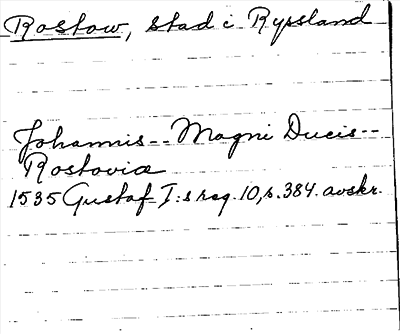 Rostow, stad i Ryssland
Johannis-- Magni Ducis--
Rostoviæ
1535 Gustaf I:s reg. 10, s. 384. avskr.